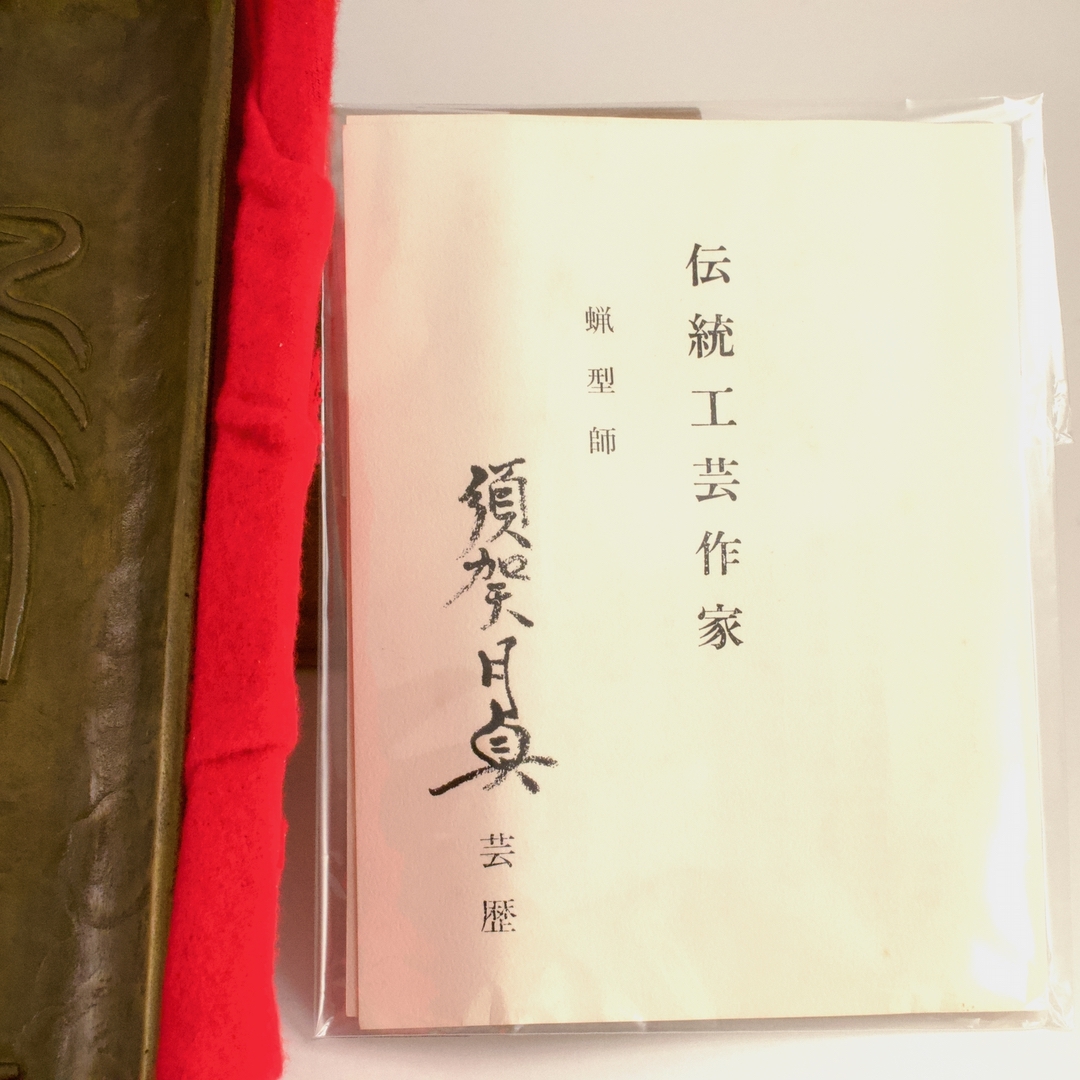 伝統工芸作家
蝋型師
須賀月真
芸歴